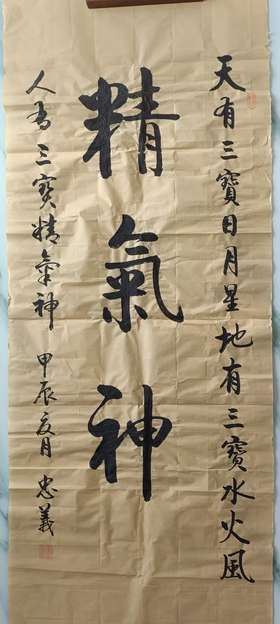 天有三寶日月星地有三寶水火風
精氣神
人有三寶精氣神 甲辰夏月 忠義